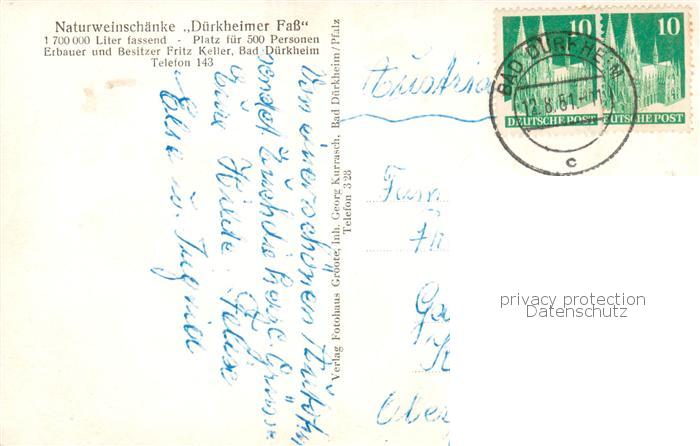 Naturweinschänke „Dürkheimer Faß“
1 700 000 Liter fassend - Platz für 500 Personen
Erbauer und Besitzer Fritz Keller, Bad Dürkheim
Telefon 143
Von einer schönen
sendet Euch die herzl. Grüsse
Eure Hilde
Else u.
Verlag Fotohaus Groote, Inh. Georg Kurrasch, Bad Dürkheim/Pfalz
Telefon 328
Austria
10 10
BAD DÜRKHEIM
12.8.51
DEUTSCHE POST DEUTSCHE POST
c
Fam
Ober
privacy protection
Datenschutz